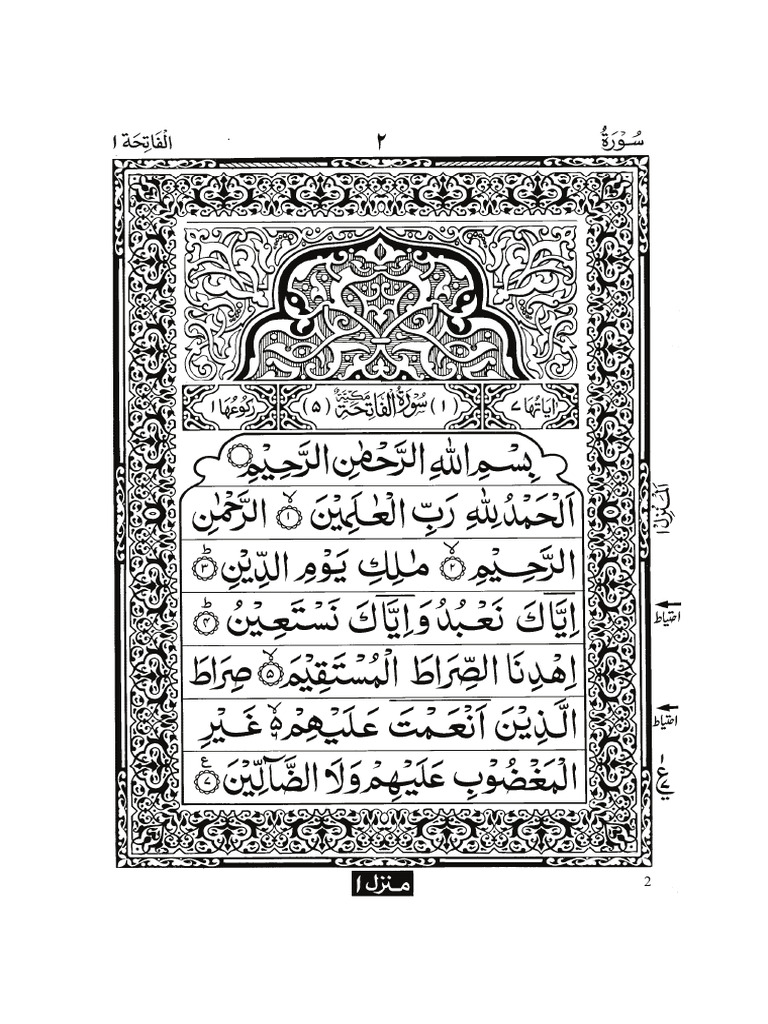 سُوْرَةُ ٢ اَلْفَاتِحَة ١
اٰيَاتُهَا ٧ (١) سُوْرَةُ الْفَاتِحَةِ مَكِّيَّةٌ (٥) رُكُوْعُهَا ١
بِسْمِ اللهِ الرَّحْمٰنِ الرَّحِيْمِ
اَلْحَمْدُ لِلّٰهِ رَبِّ الْعٰلَمِيْنَ ۙ﴿١﴾ الرَّحْمٰنِ
الرَّحِيْمِ ۙ﴿٢﴾ مٰلِكِ يَوْمِ الدِّيْنِ ؕ﴿٣﴾
اِيَّاكَ نَعْبُدُ وَاِيَّاكَ نَسْتَعِيْنُ ؕ﴿٤﴾
اِهْدِنَا الصِّرَاطَ الْمُسْتَقِيْمَ ۙ﴿٥﴾ صِرَاطَ
الَّذِيْنَ اَنْعَمْتَ عَلَيْهِمْ ۙ۵ غَيْرِ
الْمَغْضُوْبِ عَلَيْهِمْ وَلَا الضَّآلِّيْنَ ﴿٧﴾ ع
اَلْمَنْزِل ١
احتیاط
احتیاط
١ ع ٧
منزل ١
2